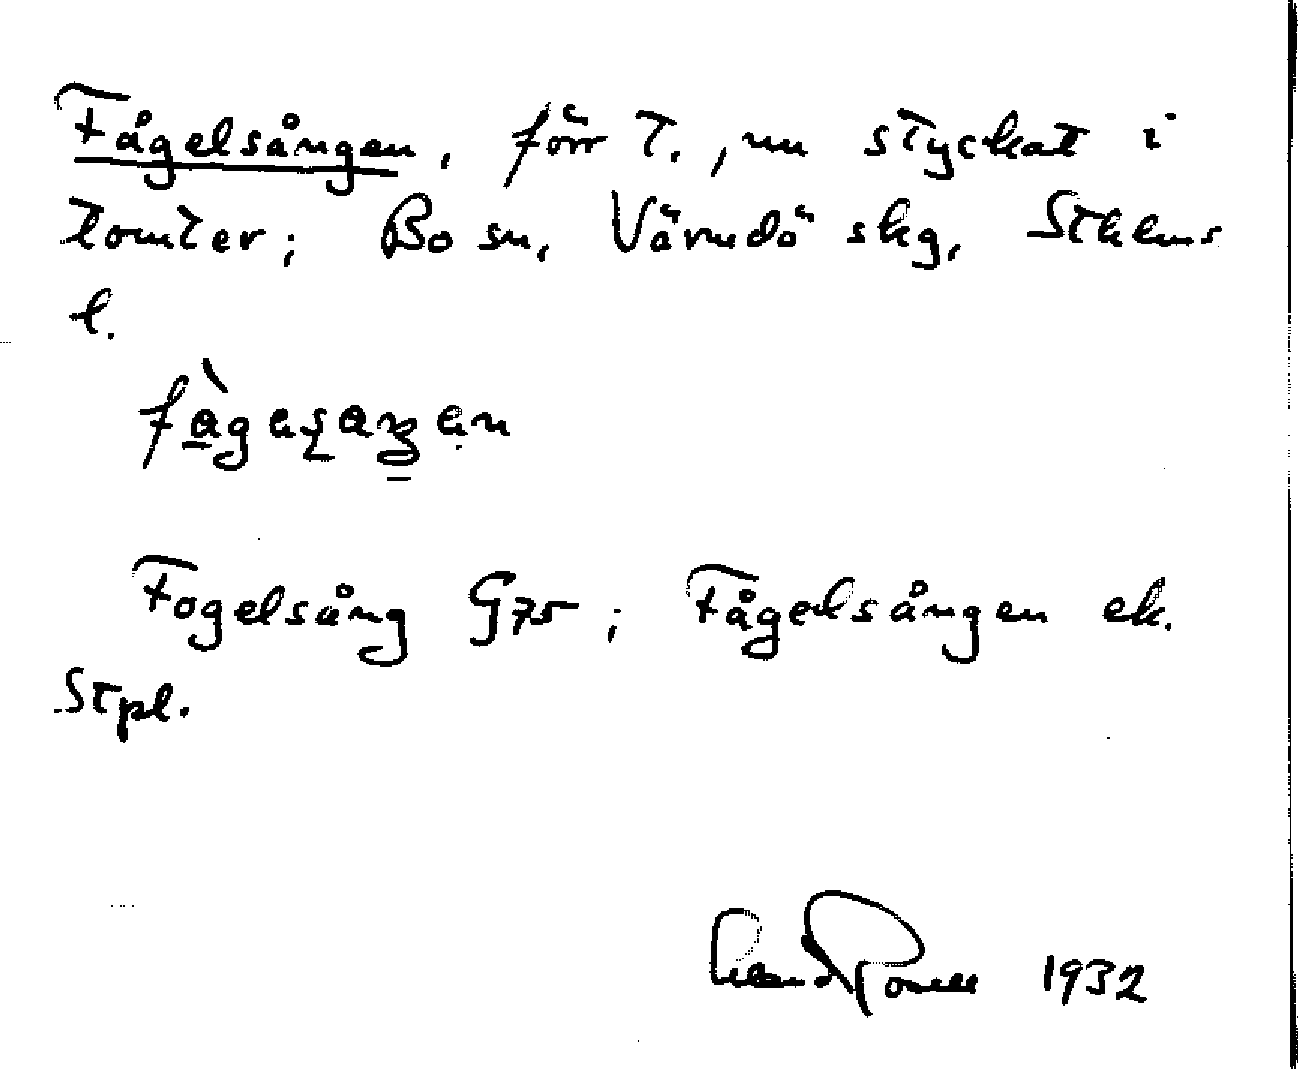 Fågelsången, förr T., nu styckat i
tomter; Bo sn, Värmdö skg, Sthlms
l.
Fogelsång G75; Fågelsången ek.
Stpl.
1932